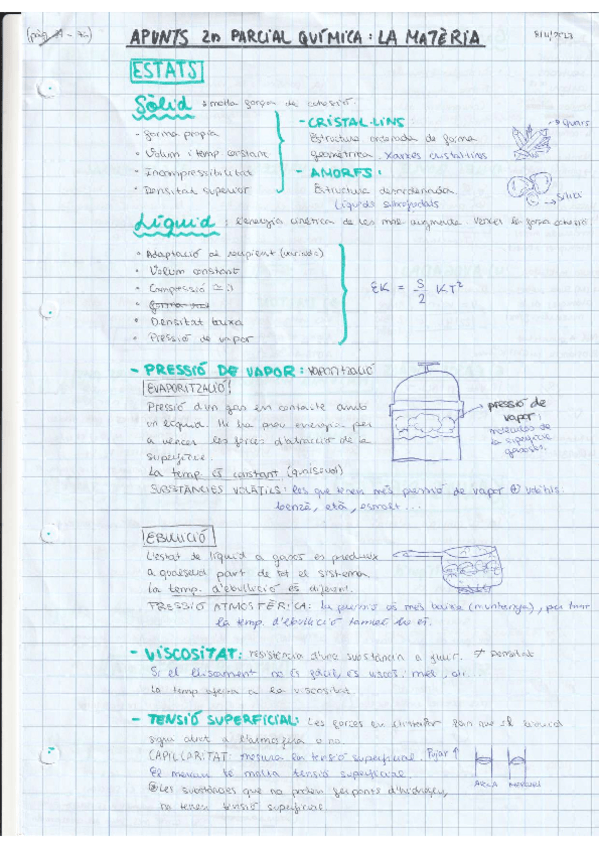 APUNTS 2n PARCIAL QUÍMICA: LA MATÈRIA
ESTATS
Sòlid : molta força de cohesió
- forma pròpia
- Volum i temp. constant
- Incompressibilitat
- Densitat superior
- CRISTAL·LINS
Estructura ordenada de forma
geomètrica. Xarxes cristal·lines
→ Quars
- AMORFS:
Estructura desordenada.
Líquids sobrefudats
→ Sílica
Líquid : l'energia cinètica de les augmenta. Vencer la força cohesió
• Adaptació al recipient (variada)
• Volum constant
• Compressió
• Densitat baixa
• Pressió de vapor
EK = KT²
- PRESSIÓ DE VAPOR: vaporització
EVAPORITZACIÓ
Pressió d'un gas en contacte amb
un líquid. Hi ha prou energia per
a vèncer les forces d'atracció de la
superfície.
La temp. és constant (qualsevol)
pressió de
vapor:
molècules de
la superfície
gasoses.
SUBSTÀNCIES VOLÀTILS: les que tenen més pressió de vapor
benzè, età, esmalt...
EBULLICIÓ
L'estat de líquid a gasós es produeix
a qualsevol part de tot el sistema
La temp. d'ebullició és diferent.
PRESSIÓ ATMOSFÈRICA: La pressió és més baixa (muntanya), per tant
la temp. d'ebullició també ho és.
- VISCOSITAT: resistència d'una substància a fluir. ≠ densitat
Si el lliscament no és fàcil, és viscós: mel, oli...
La temp afecta a la viscositat.
- TENSIÓ SUPERFICIAL: Les forces fan que el líquid
sigui atret a l'atmosfera o no.
CAPIL·LARITAT: mesura la tensió superficial. Pujar ↑
El mercuri té molta tensió superficial.
Les substàncies que no poden fer ponts d'hidrogen,
no tenen tensió superficial.
AIGUA MERCURI